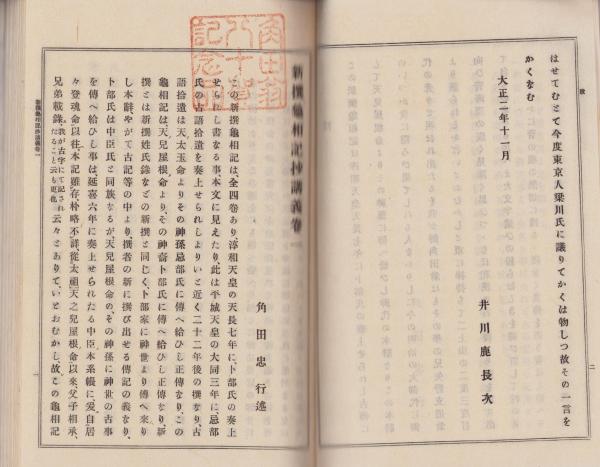 はせてむとて今度東京人梁川氏に議りてかくは物しつ故その一言を
かくなむ
大正二年十一月
井川鹿長次
二
跋
新撰龜相記抄講義卷一
角田忠行述
この新撰龜相記は、全四卷あり、淳和天皇の天長七年に、卜部氏の奏上
せられし書なる事本文に見えたり、此は平城天皇の大同三年に忌部
氏の古語拾遺を奏上せられしよりいと近く二十二年後の撰なり、古
語拾遺は天太玉命よりその神孫忌部氏に傳へ給ひし正傳なり、この
龜相記は、天兒屋根命より、その神裔卜部氏に傳へ給ひし正傳なり、新
撰とは新撰姓氏錄などの新撰と同じく、卜部家に神世より傳へ來り
し本辭やがて古記等の中より、撰者の新に撰び出せる傳記の義なり、
卜部氏は中臣氏と同族なるが天兒屋根命のその神孫に神世の古事
を傳へ給ひし事は、延喜六年に奏上せられたる中臣本系帳に、爰自居
々登魂命以往、本記雖存、朴略不詳、從太祖天之兒屋根命以來、父子相承、
兄弟載錄、我が古字にて記されたること云も更也 云々とありて、いとおむかし、故この龜相記
新撰龜相記抄講義卷一
一
角田翁
八十賀
記念